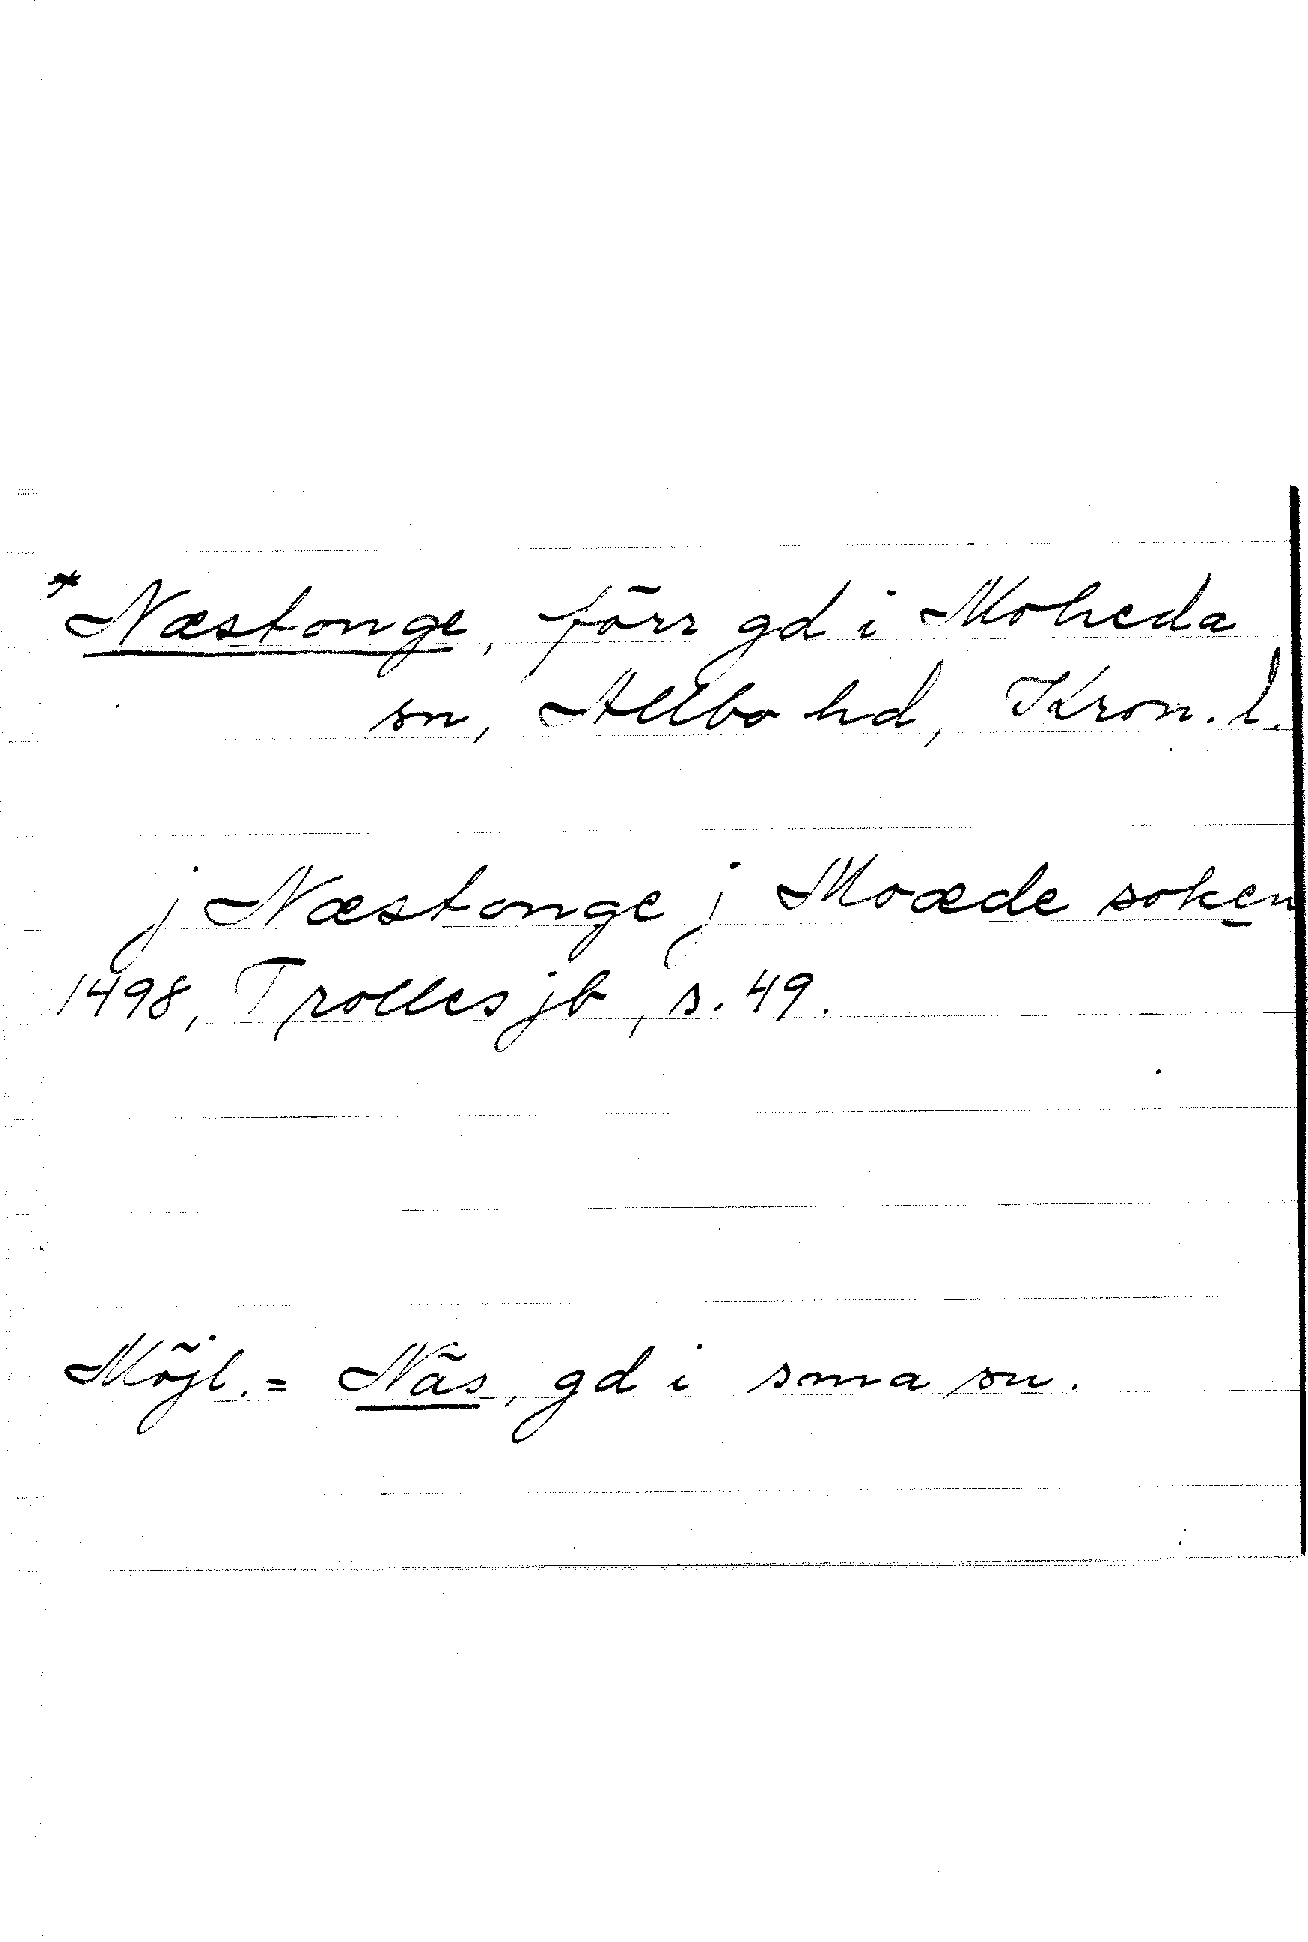 *Næstonge, förr gd i Moheda
sn, Allbo hd, Kron. l.
j Næstonge j Moæde soken
1498, Trolles jb, s. 49.
Möjl. = Näs, gd i sma sn.